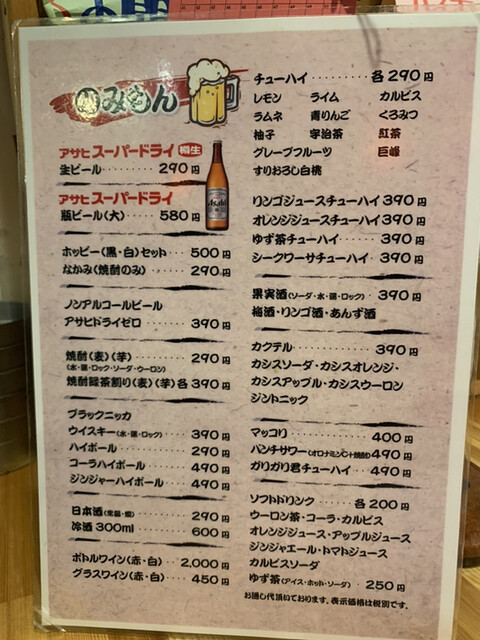 のみもん
アサヒスーパードライ 樽生
生ビール 290円
アサヒスーパードライ
瓶ビール(大) 580円
ホッピー(黒・白)セット 500円
なかみ(焼酎のみ) 290円
ノンアルコールビール
アサヒドライゼロ 390円
焼酎(麦)(芋) 290円
(水・湯・ロック・ソーダ・ウーロン)
焼酎緑茶割り(麦)(芋)各390円
ブラックニッカ
ウイスキー(水・湯・ロック) 390円
ハイボール 290円
コーラハイボール 490円
ジンジャーハイボール 490円
日本酒(常温・燗) 290円
冷酒300ml 600円
ボトルワイン(赤・白) 2,000円
グラスワイン(赤・白) 450円
チューハイ 各290円
レモン ライム カルピス
ラムネ 青りんご くろみつ
柚子 宇治茶 紅茶
グレープフルーツ 巨峰
すりおろし白桃
リンゴジュースチューハイ390円
オレンジジュースチューハイ390円
ゆず茶チューハイ 390円
シークワーサチューハイ 390円
果実酒(ソーダ・水・湯・ロック) 390円
梅酒・リンゴ酒・あんず酒
カクテル 390円
カシスソーダ・カシスオレンジ・
カシスアップル・カシスウーロン
ジントニック
マッコリ 400円
パンチサワー(オロナミンC+焼酎)490円
ガリガリ君チューハイ 490円
ソフトドリンク 各200円
ウーロン茶・コーラ・カルピス
オレンジジュース・アップルジュース
ジンジャエール・トマトジュース
カルピスソーダ
ゆず茶(アイス・ホット・ソーダ) 250円
お通し代頂いております。表示価格は税別です。